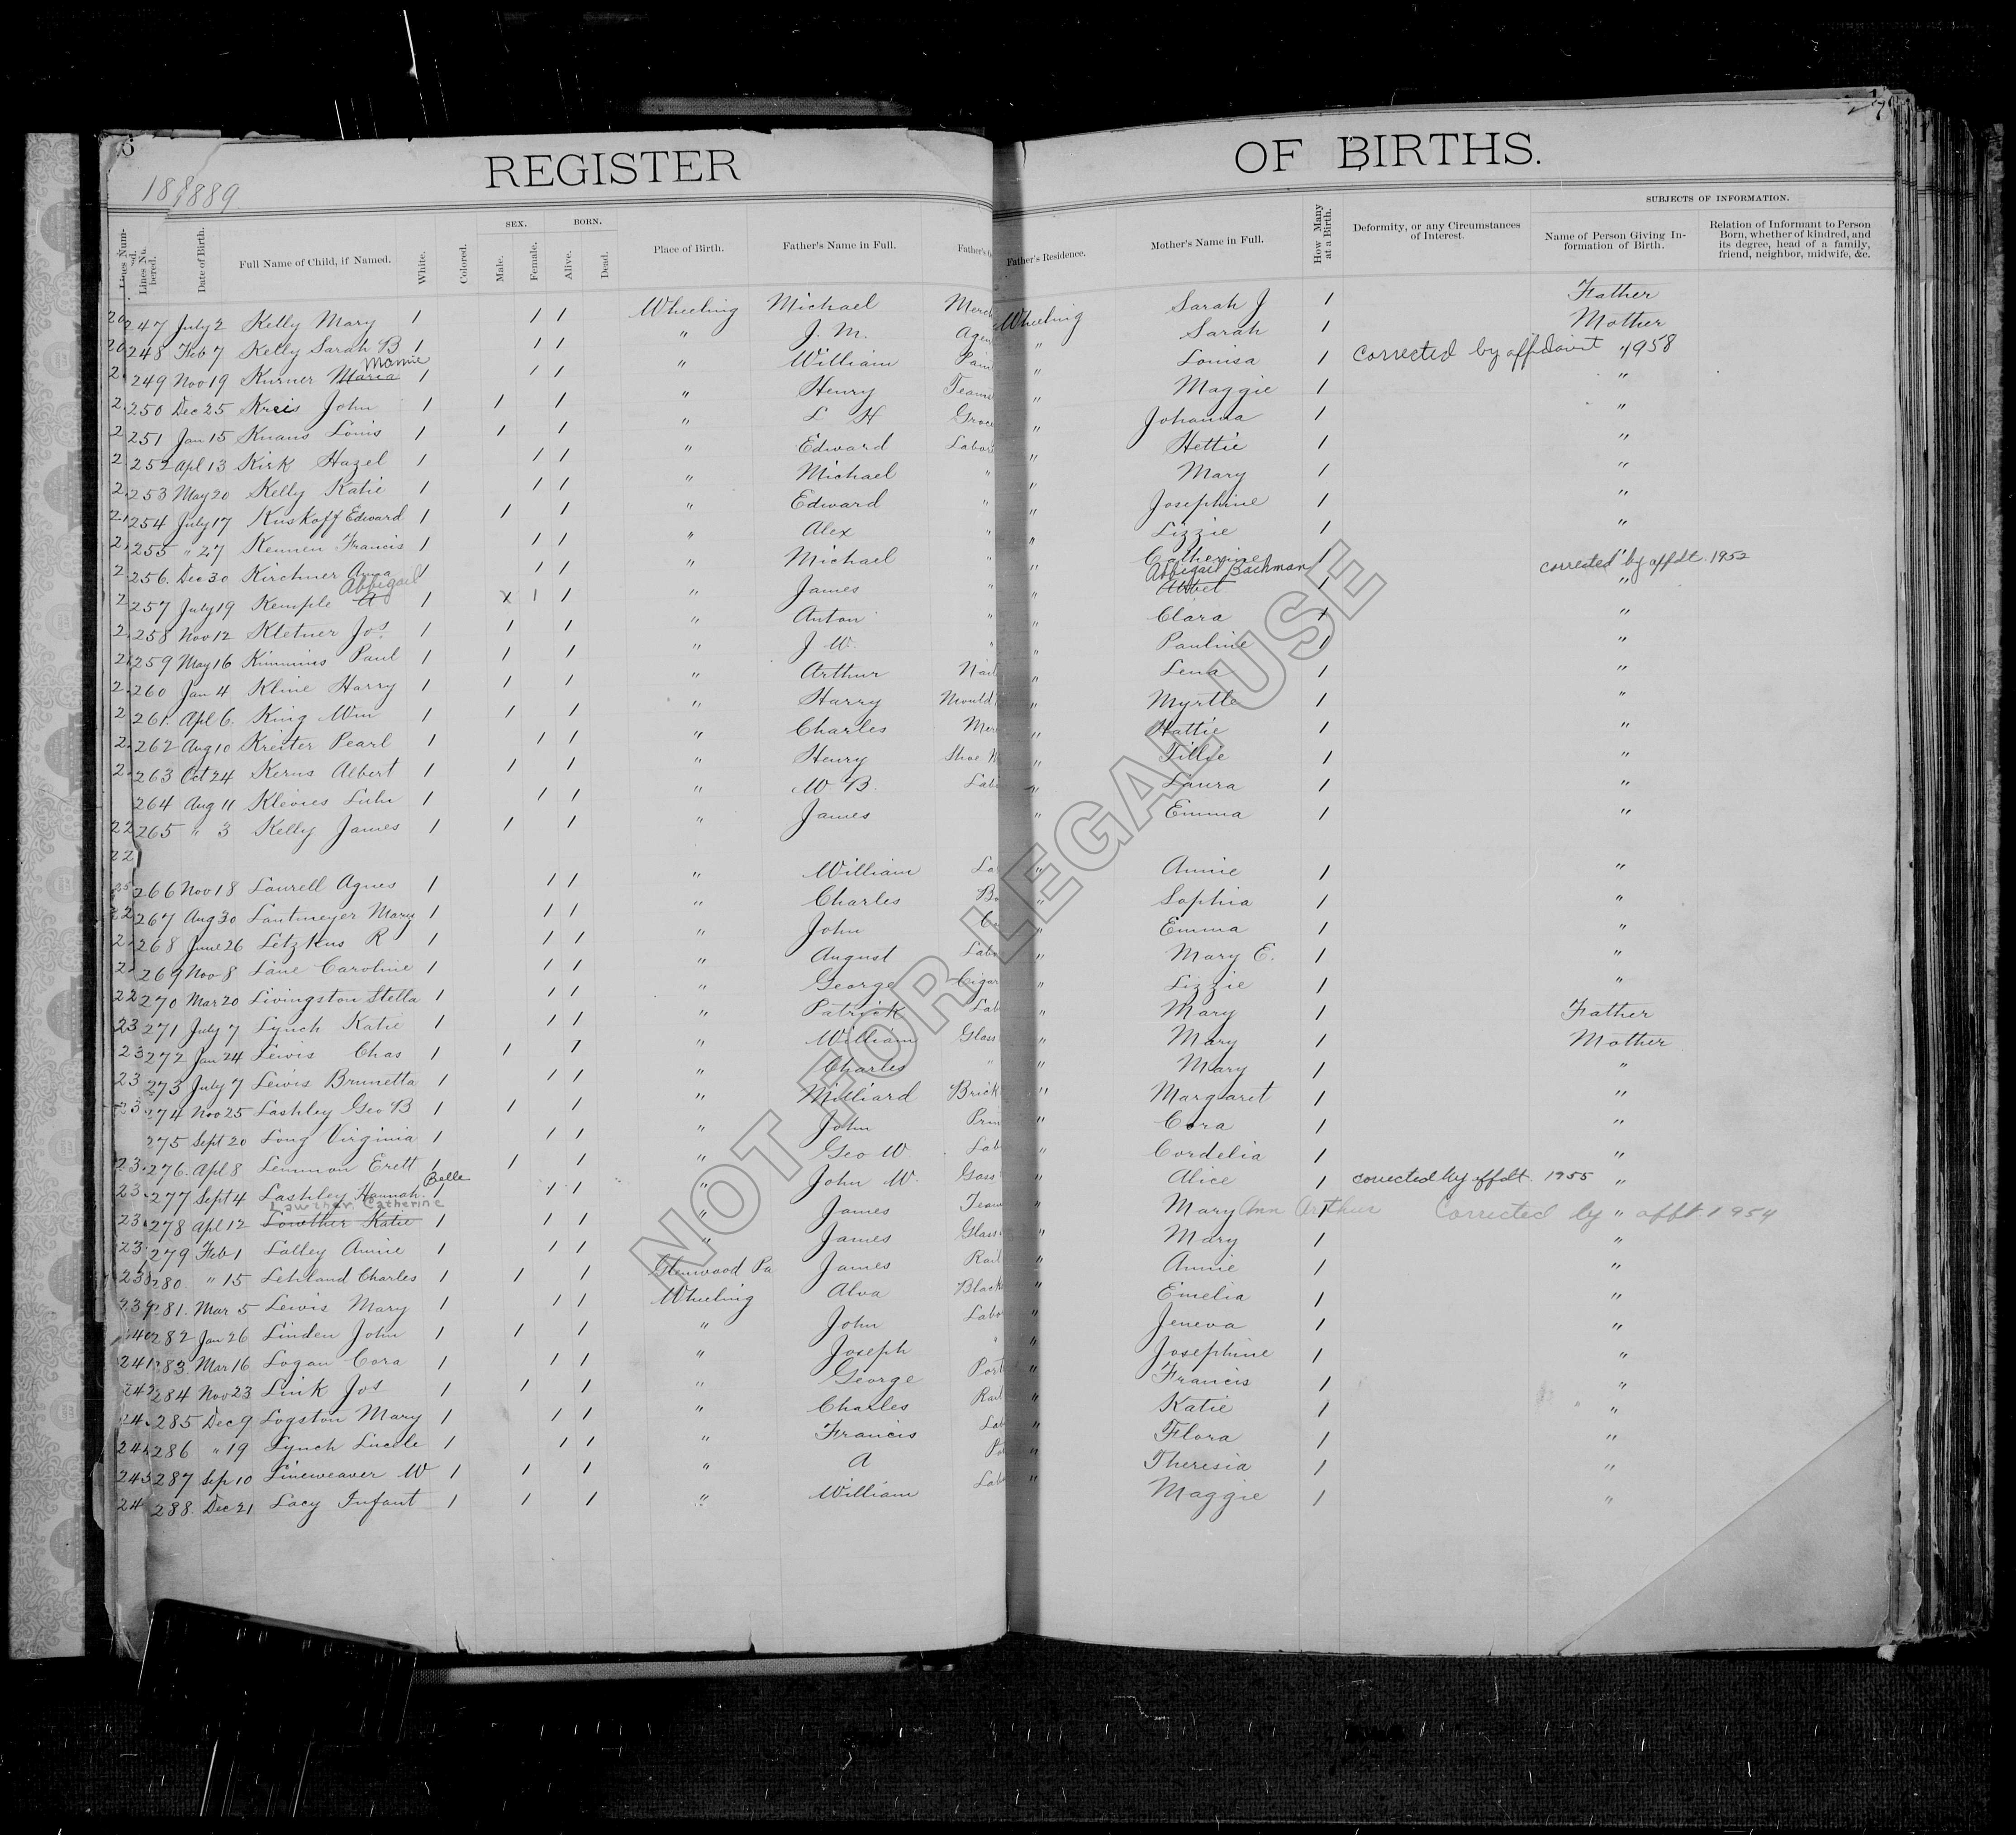 6
REGISTER OF BIRTHS.
17
188889
Lines Numbered. Date of Birth. Full Name of Child, if Named. White. Colored. SEX. Male. Female. BORN. Alive. Dead. Place of Birth. Father's Name in Full. Father's Residence. Mother's Name in Full. How Many at a Birth. Deformity, or any Circumstances of Interest. SUBJECTS OF INFORMATION. Name of Person Giving Information of Birth. Relation of Informant to Person Born, whether of kindred, and its degree, head of a family, friend, neighbor, midwife, &c.
247 July 2 Kelly Mary 1 1 1 Wheeling Michael Merch Wheeling Sarah J 1 Father
248 Feb 7 Kelly Sarah B 1 1 1 " J. M. Agen " Sarah 1 Mother
249 Nov 19 Kurner Maria Mamie 1 1 1 " William Pain " Louisa 1 Corrected by affidavit 1958 "
250 Dec 25 Kreis John 1 1 1 " Henry Teams " Maggie 1 "
251 Jan 15 Knaus Louis 1 1 1 " L H Groce " Johanna 1 "
252 Apl 13 Kirk Hazel 1 1 1 " Edward Labor " Hettie 1 "
253 May 20 Kelly Katie 1 1 1 " Michael " " Mary 1 "
254 July 17 Kuskoff Edward 1 1 1 " Edward " " Josephine 1 "
255 " 27 Kennen Francis 1 1 1 " Alex " " Lizzie 1 "
256. Dec 30 Kirchner Anna 1 1 1 " Michael " " Catherine 1 "
257 July 19 Kemple A Abbigail 1 X 1 1 " James " " Abbigail Bachman 1 corrected by affdt. 1952 "
258 Nov 12 Kletner Jos. 1 1 1 " Anton " " Clara 1 "
259 May 16 Kimmins Paul 1 1 1 " J W. " " Pauline 1 "
260 Jan 4 Kline Harry 1 1 1 " Arthur Nail " Lena 1 "
261. Apl 6. King Wm 1 1 1 " Harry Mould " Myrtle 1 "
262 Aug 10 Kreiter Pearl 1 1 1 " Charles Mer " Hattie 1 "
263 Oct 24 Kerns Albert 1 1 1 " Henry Shoe M " Tillie 1 "
264 Aug 11 Klevies Lulu 1 1 1 " W B. Lab " Laura 1 "
265 " 3 Kelly James 1 1 1 " James " Emma 1 "
266 Nov 18 Laurell Agnes 1 1 1 " William La " Annie 1 "
267 Aug 30 Lautmeyer Mary 1 1 1 " Charles B " Sophia 1 "
268 June 26 Letzkus R 1 1 1 " John " Emma 1 "
269 Nov 8 Lane Caroline 1 1 1 " August Labo " Mary E. 1 "
270 Mar 20 Livingston Stella 1 1 1 " George Cigar " Lizzie 1 "
271 July 7 Lynch Katie 1 1 1 " Patrick Lab " Mary 1 Father
272 Jan 24 Lewis Chas 1 1 1 " William Glass " Mary 1 Mother
273 July 7 Lewis Brunetta 1 1 1 " Charles " " Mary 1 "
274 Nov 25 Lashley Geo B 1 1 1 " Milliard Brick " Margaret 1 "
275 Sept 20 Long Virginia 1 1 1 " John Prin " Cora 1 "
276. Apl 8 Lemmon Erett 1 1 1 " Geo W Lab " Cordelia 1 "
277 Sept 4 Lashley Hannah Belle 1 1 1 " John W. Gass " Alice 1 corrected by affdt. 1955 "
278 Apl 12 Lowther Katie Lawther Catherine 1 1 " James Team " Mary Ann Arthur 1 Corrected by " afft. 1954
279 Feb 1 Lalley Annie 1 1 1 " James Glass " Mary 1 "
280 " 15 Lehland Charles 1 1 1 Glenwood Pa James Rail " Annie 1 "
281. Mar 5 Lewis Mary 1 1 1 Wheeling Alva Black " Emelia 1 "
282 Jan 26 Linden John 1 1 1 " John Labo " Jeneva 1 "
283. Mar 16 Logan Cora 1 1 1 " Joseph " " Josephine 1 "
284 Nov 23 Link Jos 1 1 1 " George Port " Francis 1 "
285 Dec 9 Logston Mary 1 1 1 " Charles Rail " Katie 1 "
286 " 19 Lynch Lucele 1 1 1 " Francis Lab " Flora 1 "
287 Sep 10 Lineweaver W 1 1 1 " A Po " Theresia 1 "
288. Dec 21 Lacy Infant 1 1 1 " William Lab " Maggie 1 "
NOT FOR LEGAL USE